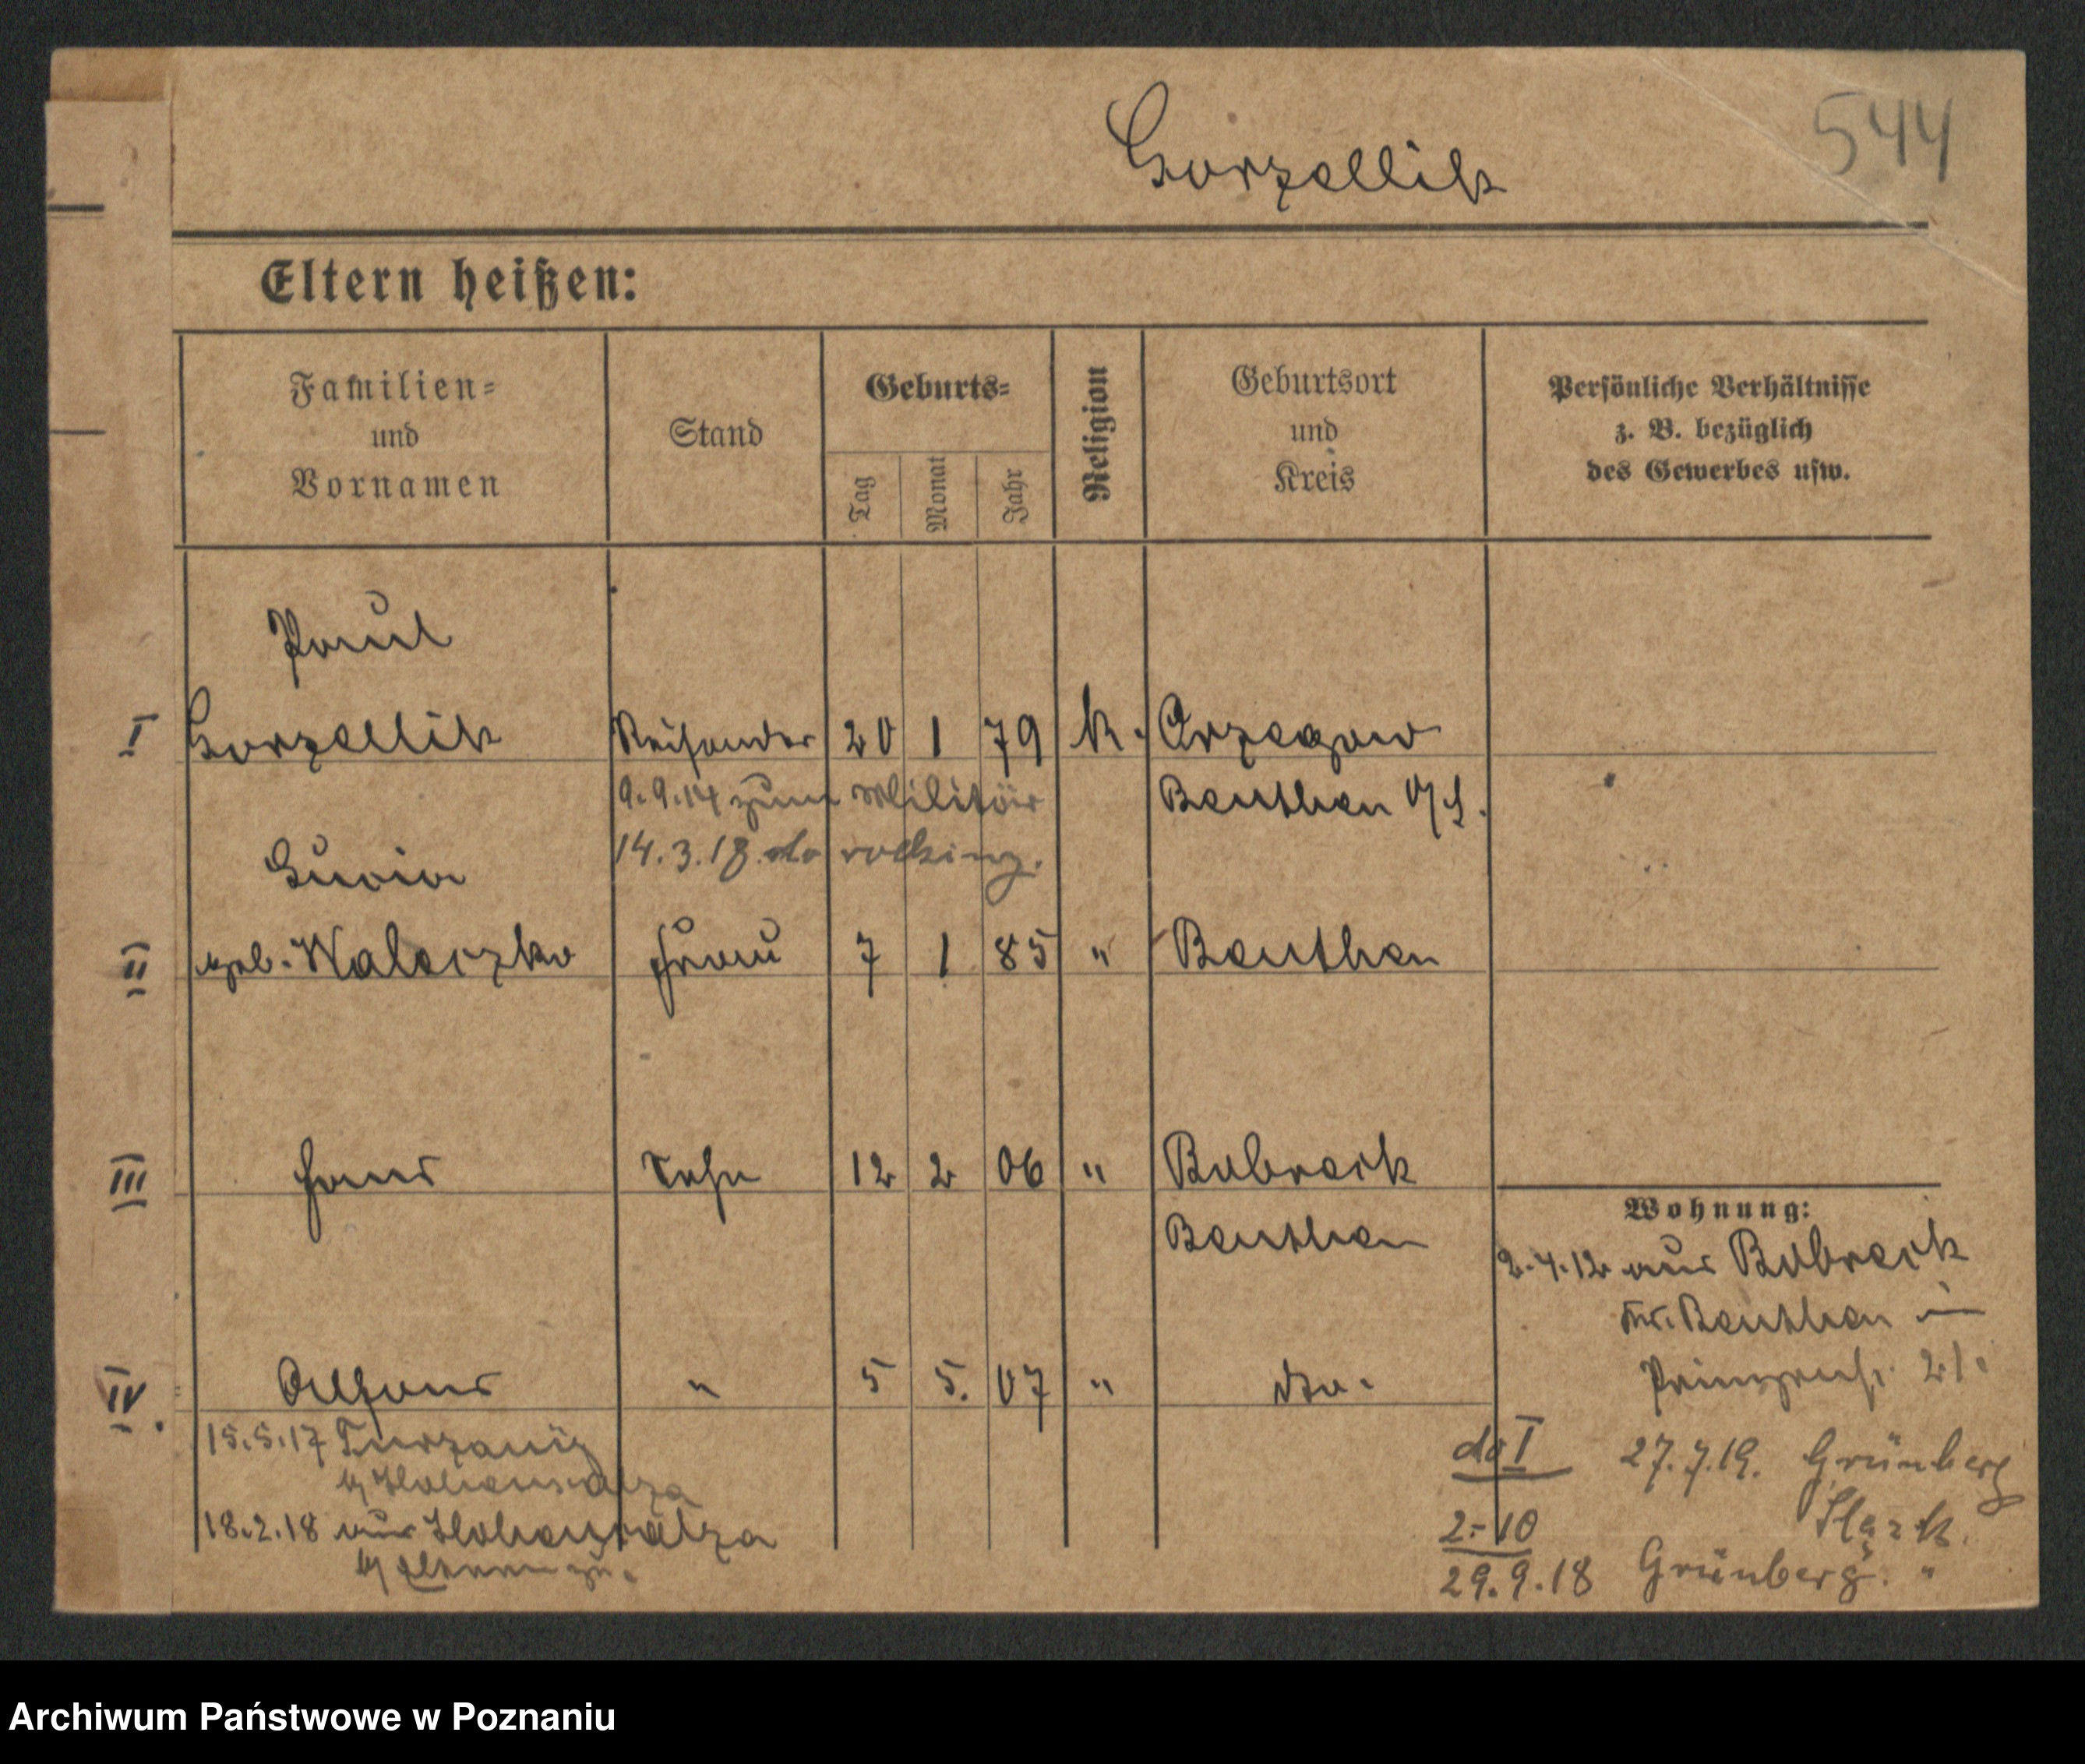 Gorzellik
544
Eltern heißen:
Familien=
und
Vornamen
Stand
Geburts=
Tag
Monat
Jahr
Religion
Geburtsort
und
Kreis
Persönliche Verhältnisse
z. B. bezüglich
des Gewerbes usw.
Paul
I Gorzellik Reisender 20 1 79 k. Orzegow
9.9.14 zum Militär Beuthen O/S.
14.3.18. do
II geb. Frau 7 1 85 " Beuthen
III Hans Sohn 12 2 06 " Bobreck
Beuthen
IV. Alfons " 5 5. 07 " dto.
Wohnung:
2.4.12 aus Bobreck
Kr. Beuthen in
Prinzenstr. 21.
15.5.17
b/ Hohensalza
18.2.18 aus Hohensalza
do I 27.7.19. Grünberg
2.-10
29.9.18 Grünberg. "
Archiwum Państwowe w Poznaniu